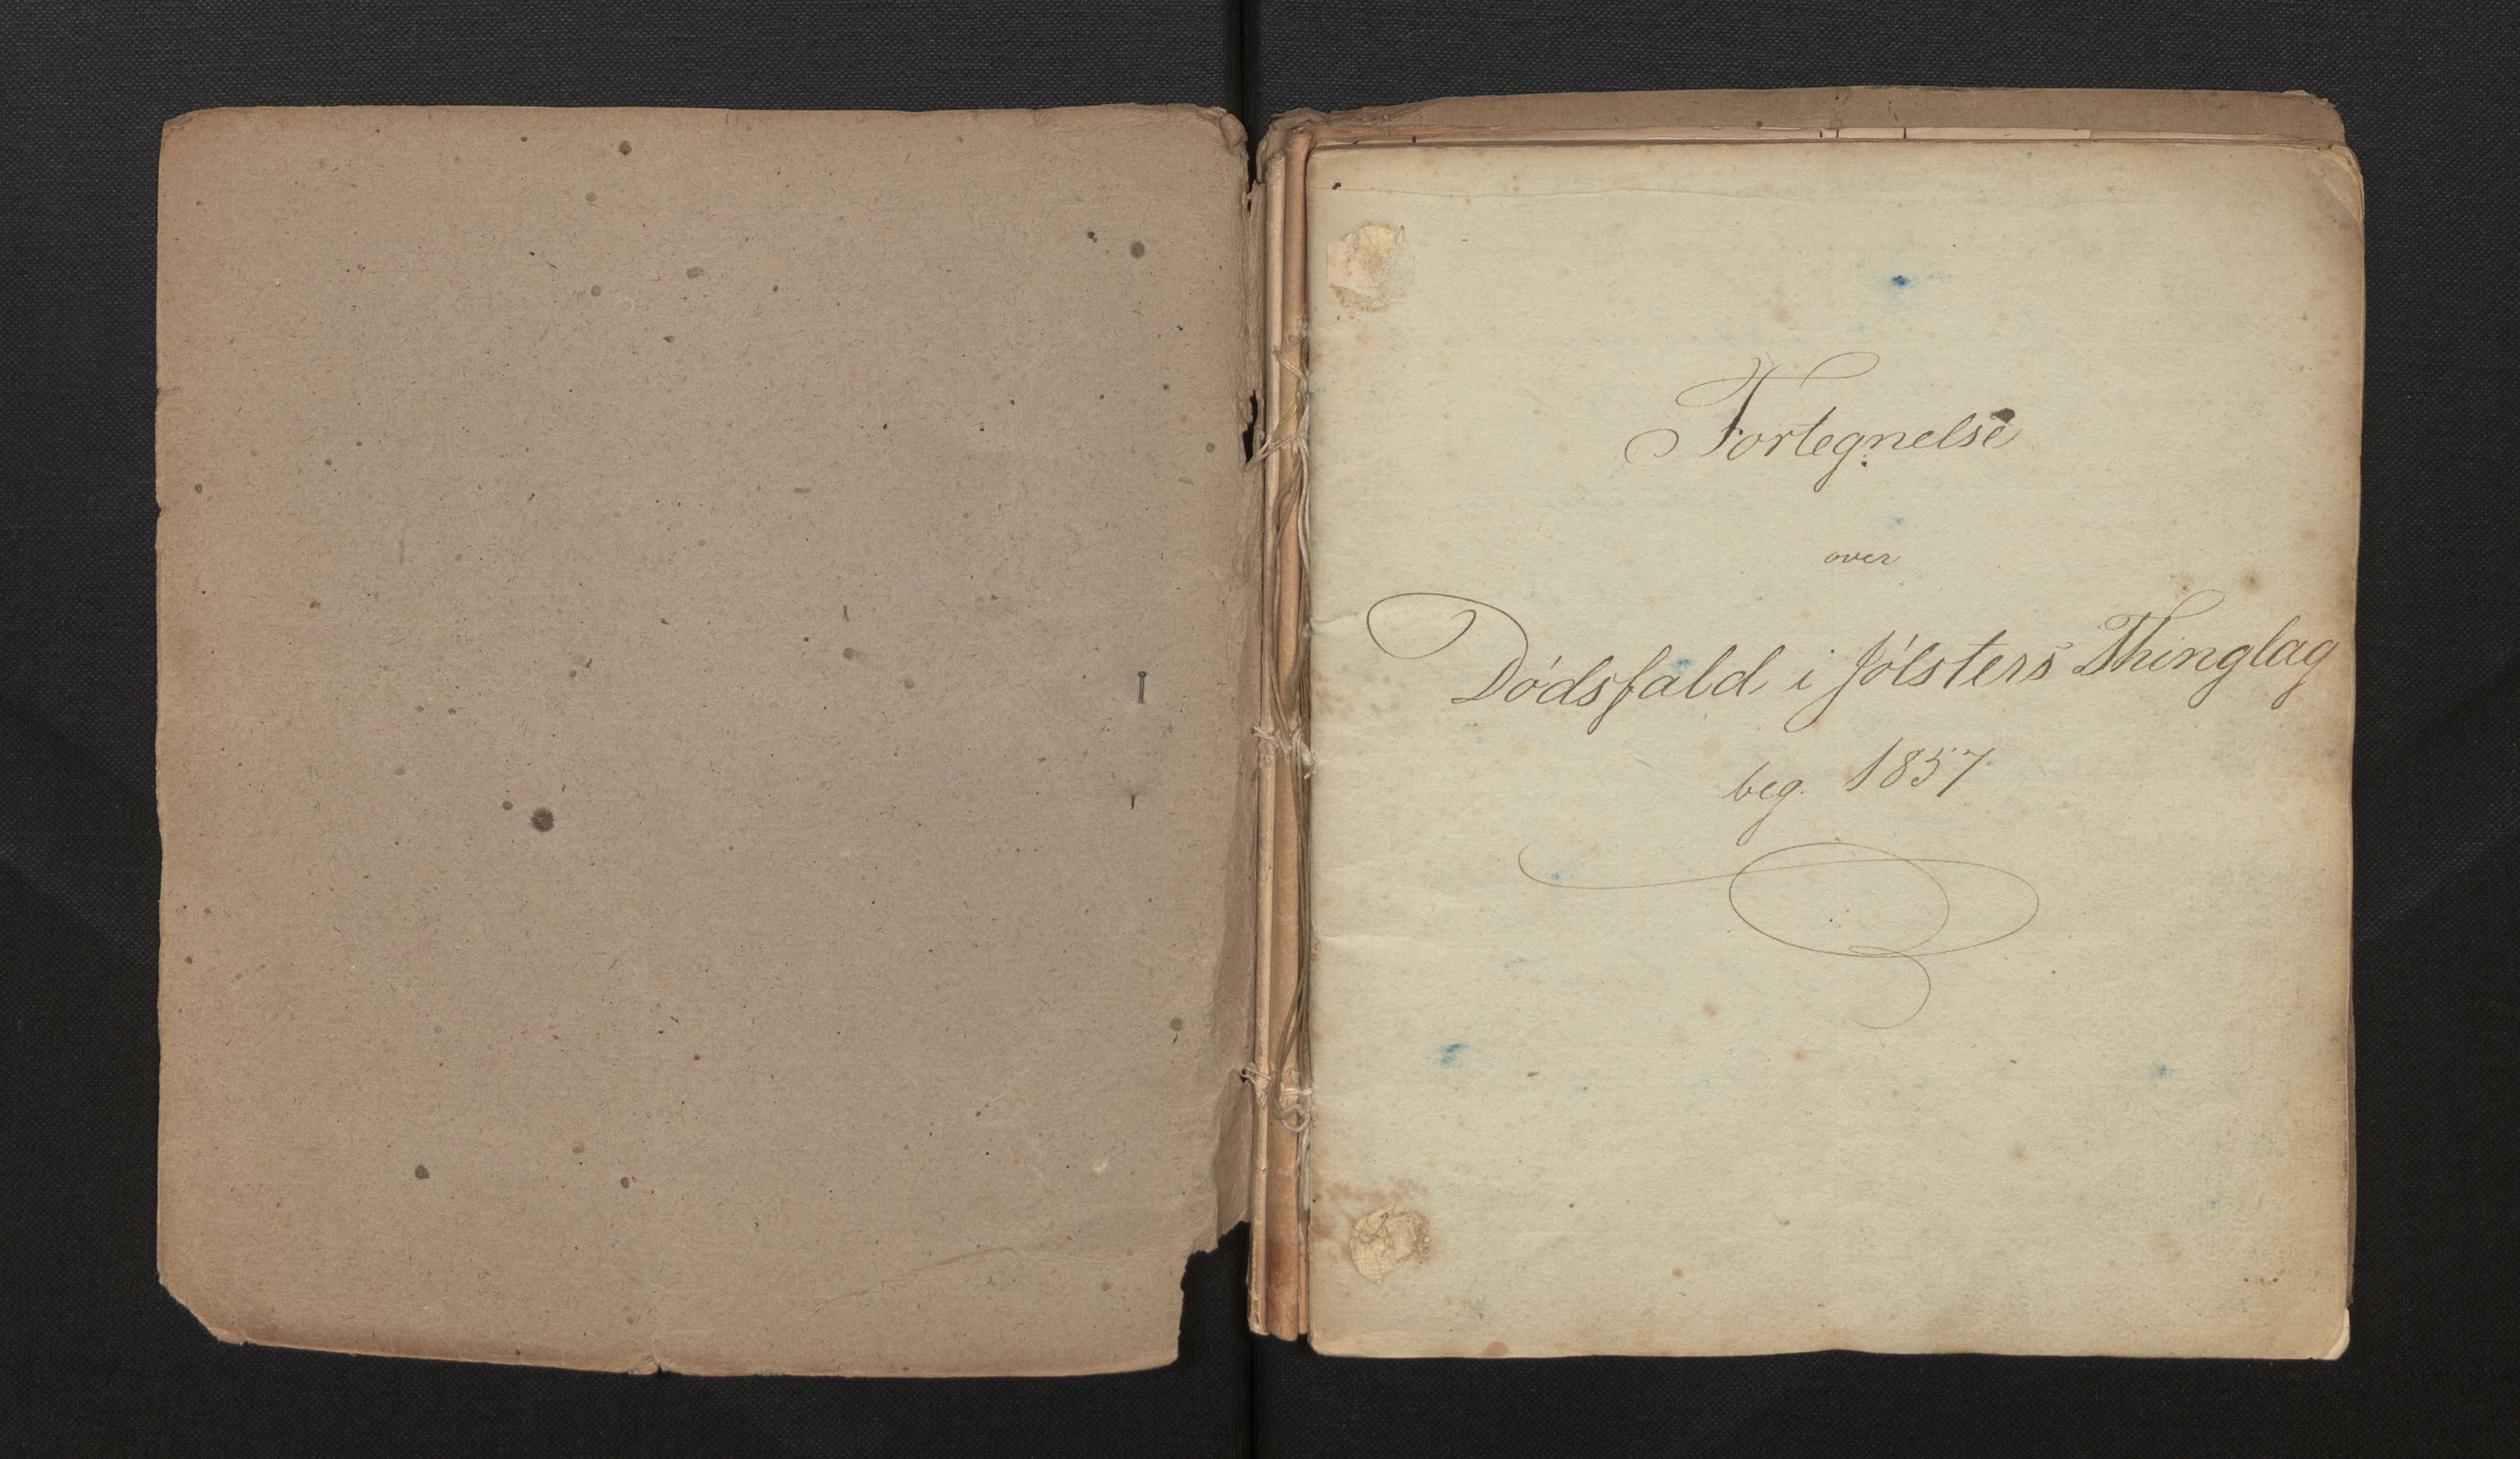 Fortegnelse
over
Dødsfald i Jølsters Thinglag
beg. 1857